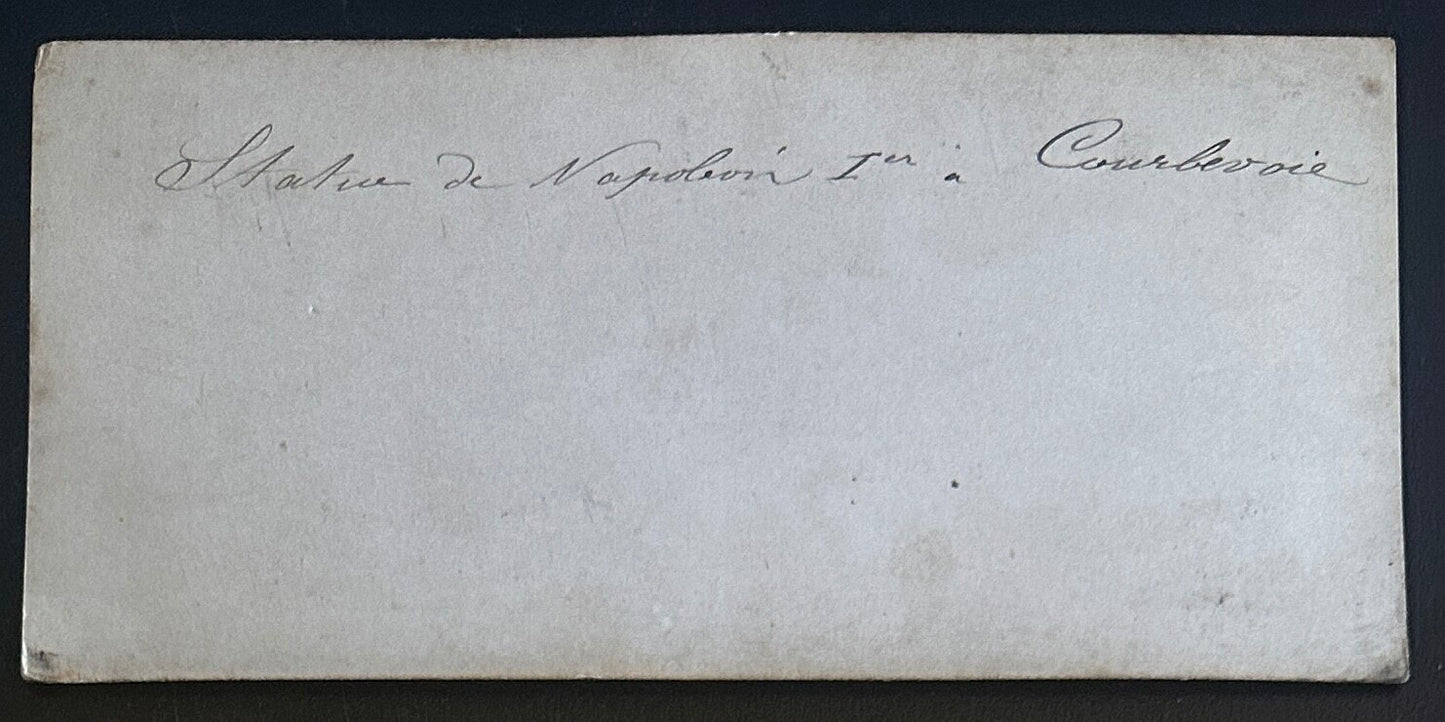 Statue de Napoléon Ier à Courbevoie